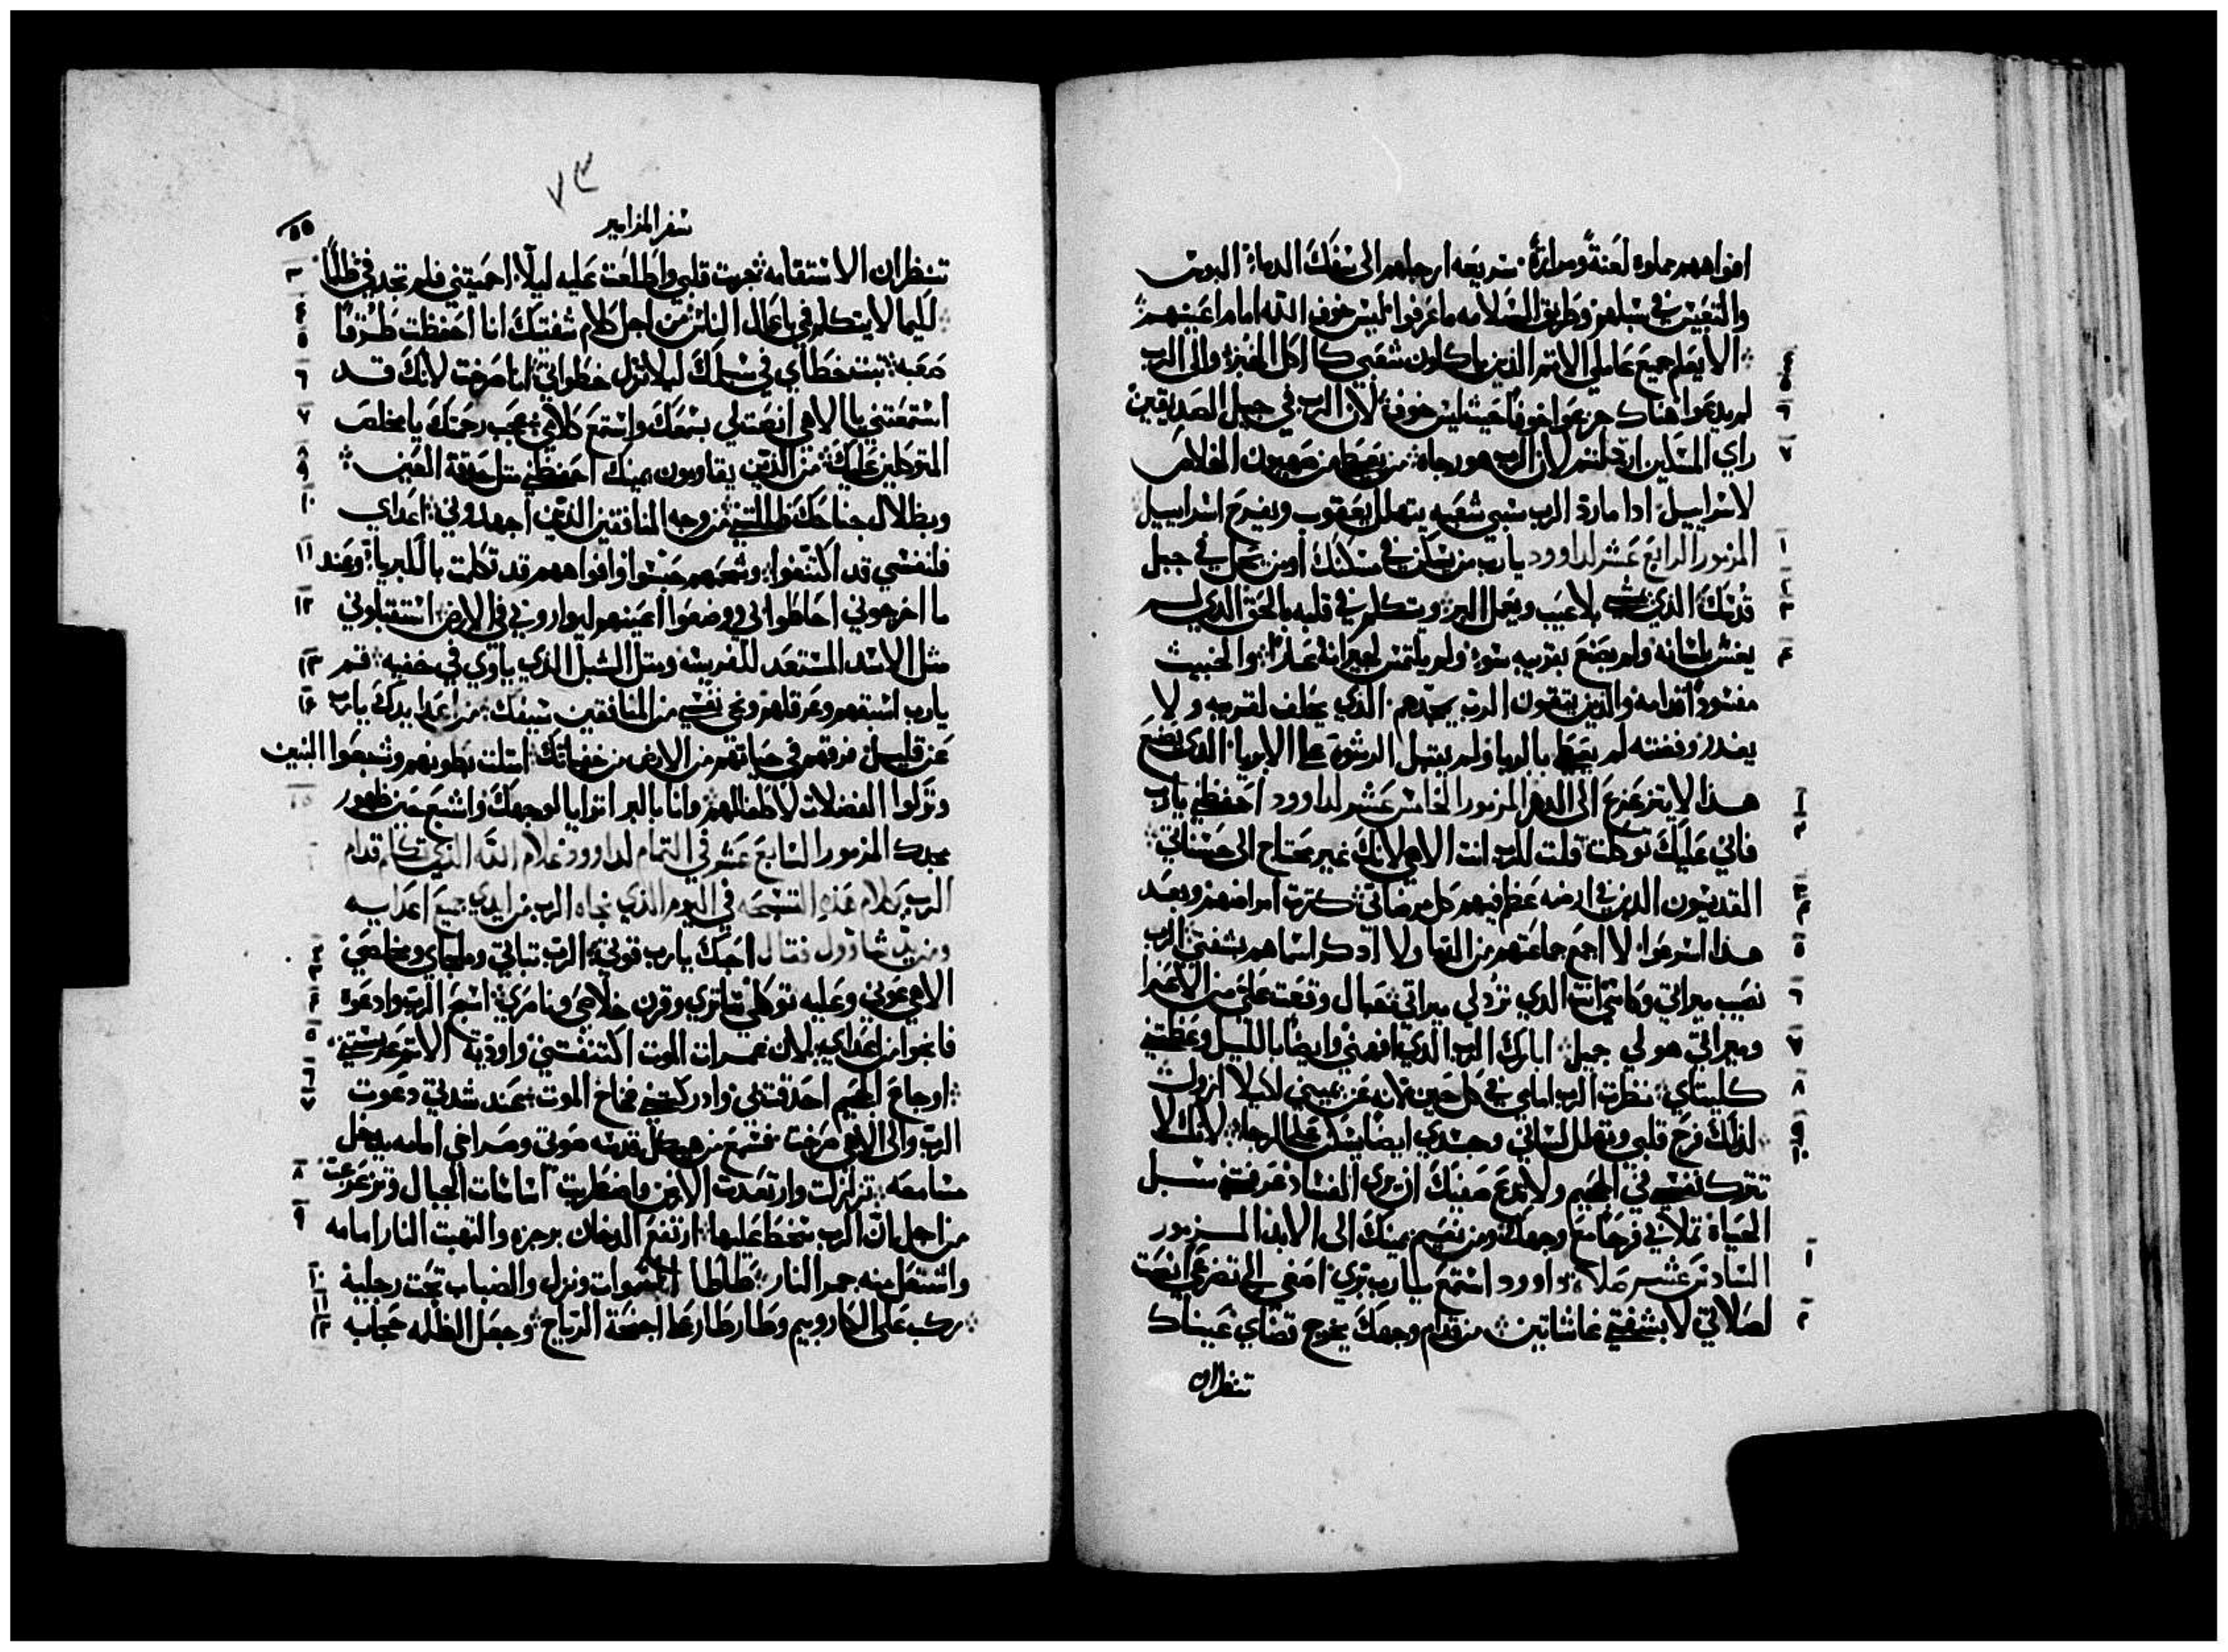 افواههم مملوه لعنةً ومرارةً سريعه ارجلهم الى سفك الدماء البوس
والتعيس في سبلهم وطريق السلامه ما عرفوا ليس خوف الله امام اعينهم
الا يعلم جميع عاملي الاتم الذين ياكلون شعبي كاكل الخبز والى الرب
لم يدعوا هناك جزعوا خوفًا حيث ليس خوف لان الرب في جيل الصديقين
راي المسكين ارذلتم لان الرب هو رجاه من يعطي من صهيون الخلاص
لاسراييل ادا مارد الرب سبي شعبه يتهلل يعقوب ويفرح اسراييل
المزمور الرابع عشر لداوود يارب من يسكن في مسكنك او من يحل في جبل
قدسك الذي يمشي بلا عيب ويعمل البر ويتكلم في قلبه بالحق الذي لم
يغش بلسانه ولم يصنع بقريبه سوء ولم يلتمس لجيرانه عارًا والخبيث
مفسود امامه والذين يتقون الرب يمجدهم الذي يحلف لقريبه ولا
يغدر وفضته لم يعطي بالربا ولم يقبل الرشوه على الابريا الذي يصنع
هذا لا يتزعزع الى الدهر المزمور الخامس عشر لداوود احفظني يارب
فاني عليك توكلت قلت للرب انت الاهي لانك غير محتاج الى حسناتي
القديسون الذين في ارضه عظم فيهم كل مرضاتي كترت امراضهم وبعد
هذا اسرعوا لا اجمع جماعتهم من الدما ولا ادكر اسماهم بشفتي الرب
نصيب ميراتي وكاسي انت الذي ترد لي ميراتي حبال وقعت علي من الاعزا
وميراتي هو لي جميل ابارك الرب الذي افهمني وايضًا بالليل وعظتني
كليتاي نظرت الرب امامي في كل حين لانه عن يميني لكيلا ازول
لذلك فرح قلبي وتهلل لساني وجسدي ايضًا يسكن على الرجاء لانك لا
تترك نفسي في الجحيم ولا تدع صفيك ان يري الفساد عرفتني سبل
الحياة تملاني فرحًا مع وجهك ومن نعيم يمينك الى الابد المزمور
السادس عشر صلاة داوود استمع يارب بري اصغي الى تضرعي انصت
لصلاتي لا بشفتي غاشاتين من قدام وجهك يخرج قضاي عيناك
تنظران
٧٣
سفر المزامير
تنظران الاستقامه جربت قلبي واطلعت عليه ليلًا احميتني فلم تجد في ظلمًا
لكيما لا يتكلم في باعمال الناس من اجل كلام شفتيك انا احفظت طرقًا
صعبه تبت خطاي في سبلك ليلا تزل خطواتي انا صرخت لانك قد
استمعتني يا الاهي انصت لي بسمعك واستمع كلامي عجب رحمتك يا مخلص
المتوكلين عليك من الذين يقاومون يمينك احفظني متل حدقة العين
وبظلال جناحك ظللتني من وجه المنافقين الذين اجهدوني اعداي
فلنفسي قد اكتنفوا وشحمهم حبسوا وافواههم قد تكلمت بالكبريا وعند
ما اخرجوني احاطوا بي ووضعوا اعينهم ليواروني في الارض استقبلوني
مثل الاسد المستعد للفريسه ومتل الشبل الذي ياوي في خفيه قم
يارب اسبقهم وعرقلهم ونجي نفسي من المنافقين سيفك من اعدا يدك يارب
عن قليل فرقهم في حياتهم من الارض من خفياتك امتلت بطونهم وشبعوا البنين
وتركوا الفضلات لاطفالهم وانا بالبر اترايا لوجهك واشبع حين ظهور
مجدك المزمور السابع عشر في التمام لداوود غلام الله الذي تكلم قدام
الرب كلام هذه التسبحه في اليوم الذي نجاه الرب من ايدي جميع اعدايه
ومن يد شاوول فقال احبك يارب قوتي الرب تباتي وملجاي ومخلصي
الاهي عوني وعليه توكلي ساتري وقرن خلاصي وناصري اسم الرب وادعوه
فانجوا من اعداي لان غمرات الموت اكتنفتني واودية الاتم عرستني
اوجاع الجحيم احدقت بي وادركتني فخاخ الموت عند شدتي دعوت
الرب والى الاهي صرخت فسمع من هيكل قدسه صوتي وصراخي امامه يدخل
مسامعه تزلزلت وارتعدت الارض واضطربت اساسات الجبال وتزعزعت
من اجل ان الرب سخط عليها ارتفع الدخان برجزه والتهبت النار امامه
واشتعل منه جمر النار طاطا السموات ونزل والضباب تحت رجليه
ركب على الكاروبيم وطار طار على اجنحة الرياح وجعل الظلمه حجابه